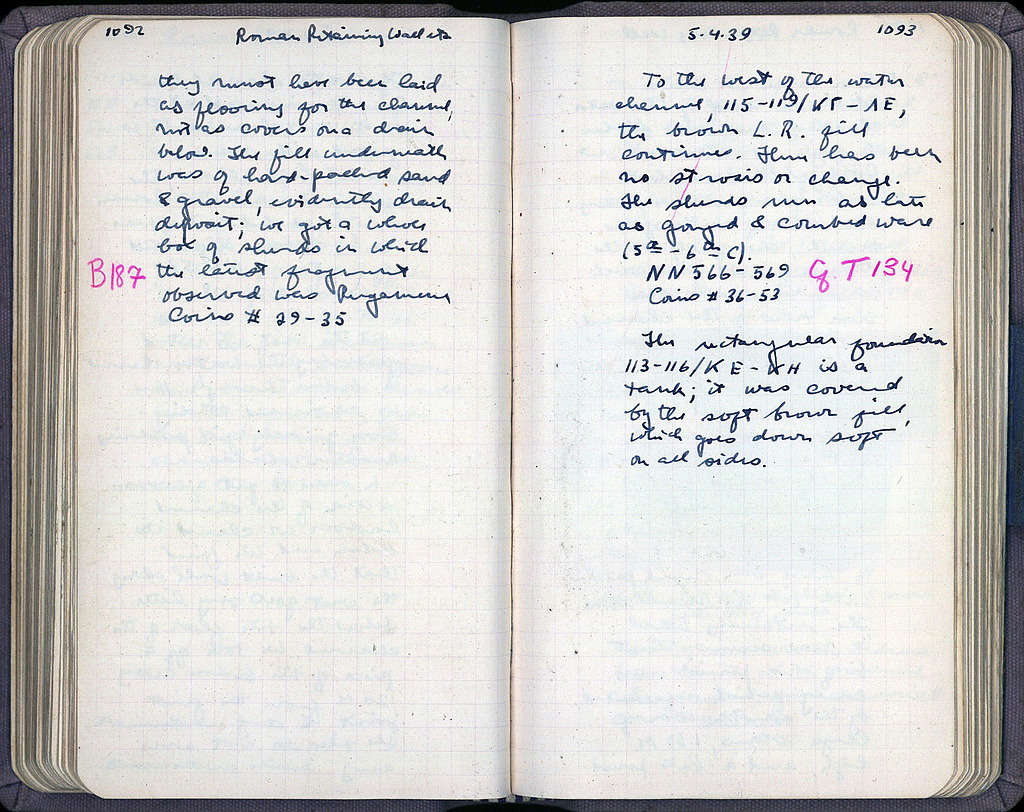 1092
Roman Retaining Wall etc
they must have been laid
as flooring for the channel,
not as covers on a drain
below. The fill underneath
was of hard-packed sand
& gravel, evidently drain
deposit; we got a whole
box of sherds in which
B187 the latest fragment
observed was Pergamene
Coins # 29-35
5.4.39
1093
To the west of the water
channel, 115-119/ΚΓ-ΛΕ,
the brown L.R. fill
continues. There has been
no strosis or change.
The sherds run as late
as gouged & combed ware
(5th - 6th C).
NN 566-569 QT 134
Coins # 36-53
The rectangular foundation
113-116/ΚΕ-ΚΗ is a
tank; it was covered
by the soft brown fill,
which goes down soft
on all sides.